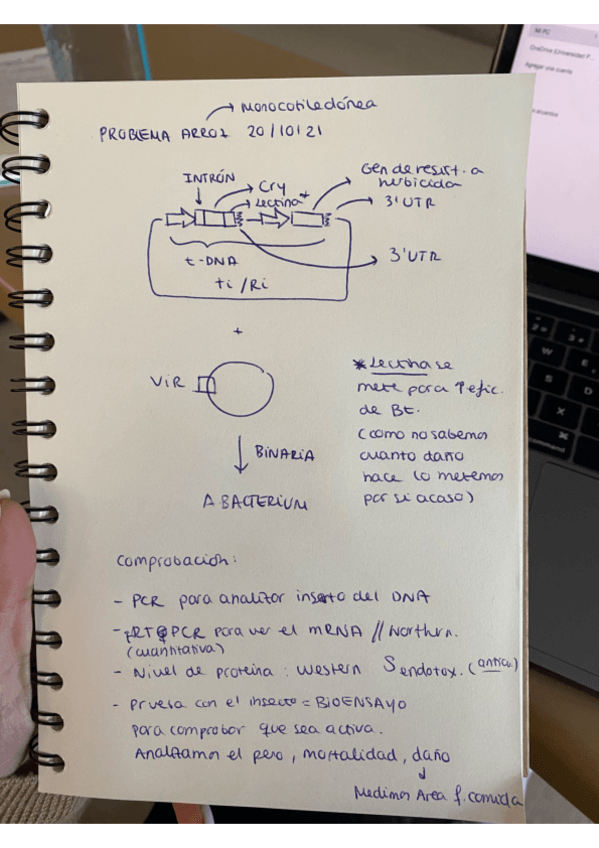 Monocotiledónea
PROBLEMA ARROZ 20/10/21
INTRÓN
Cry
Lectina*
Gen de resist. a
herbicida
3'UTR
3'UTR
t-DNA
ti/Ri
+
VIR
BINARIA
A BACTERIUM
* Lectina se
mete para ↑ efic.
de Bt.
(como no sabemos
cuanto daño
hace lo metemos
por si acaso)
Comprobación:
- PCR para analizar inserto del DNA
- qRT PCR para ver el mRNA // Northrn.
(cuantitativa)
- Nivel de proteína: Western δ endotox. (anticu.)
- Prueba con el insecto = BIOENSAYO
para comprobar que sea activa.
Analizamos el peso, mortalidad, daño
Medimos Area f. comida
Mi PC
OneDrive (Universidad P...
Agregar una cuenta
command